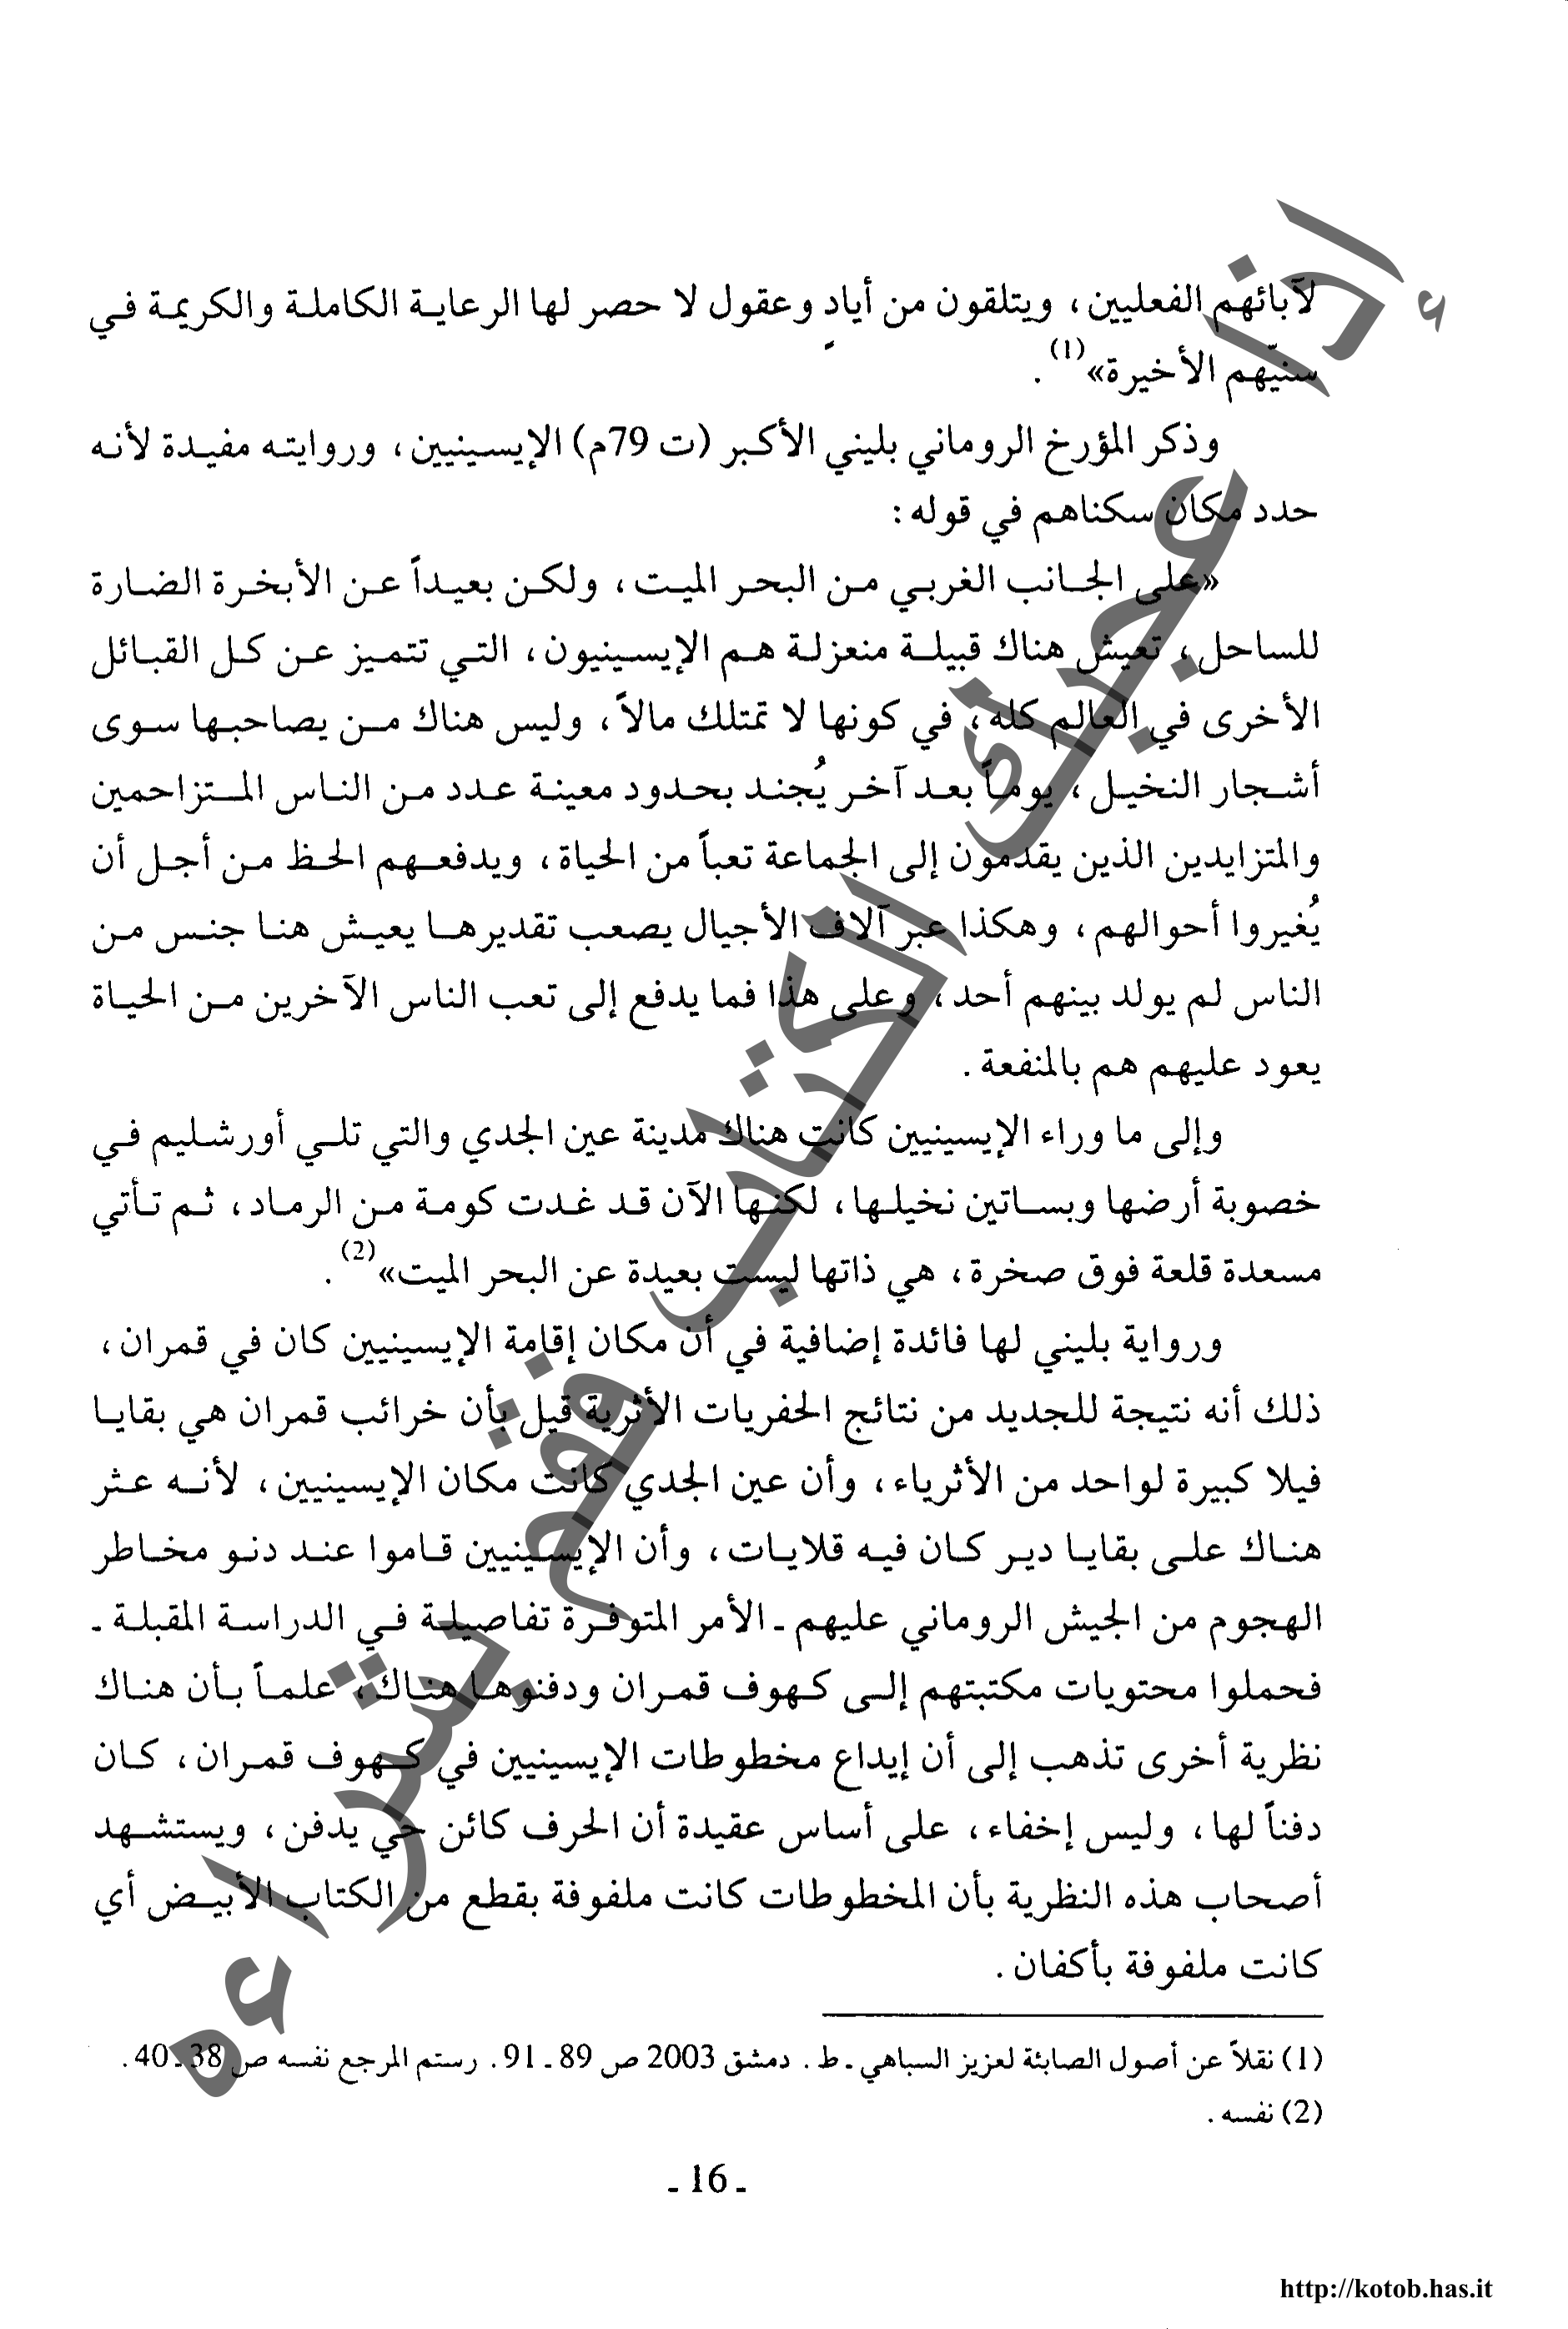 لآبائهم الفعليين، ويتلقون من أيادٍ وعقول لا حصر لها الرعاية الكاملة والكريمة في
سنيّهم الأخيرة»(1).
وذكر المؤرخ الروماني بليني الأكبر (ت 79م) الإيسينيين، وروايته مفيدة لأنه
حدد مكان سكناهم في قوله:
«على الجانب الغربي من البحر الميت، ولكن بعيداً عن الأبخرة الضارة
للساحل، تعيش هناك قبيلة منعزلة هم الإيسينيون، التي تتميز عن كل القبائل
الأخرى في العالم كله، في كونها لا تمتلك مالاً، وليس هناك من يصاحبها سوى
أشجار النخيل، يوماً بعد آخر يُجند بحدود معينة عدد من الناس المتزاحمين
والمتزايدين الذين يقدمون إلى الجماعة تعباً من الحياة، ويدفعهم الحظ من أجل أن
يُغيروا أحوالهم، وهكذا عبر آلاف الأجيال يصعب تقديرها يعيش هنا جنس من
الناس لم يولد بينهم أحد، وعلى هذا فما يدفع إلى تعب الناس الآخرين من الحياة
يعود عليهم هم بالمنفعة.
وإلى ما وراء الإيسينيين كانت هناك مدينة عين الجدي والتي تلي أورشليم في
خصوبة أرضها وبساتين نخيلها، لكنها الآن قد غدت كومة من الرماد، ثم تأتي
مسعدة قلعة فوق صخرة، هي ذاتها ليست بعيدة عن البحر الميت»(2).
ورواية بليني لها فائدة إضافية في أن مكان إقامة الإيسينيين كان في قمران،
ذلك أنه نتيجة للجديد من نتائج الحفريات الأثرية قيل بأن خرائب قمران هي بقايا
فيلا كبيرة لواحد من الأثرياء، وأن عين الجدي كانت مكان الإيسينيين، لأنه عثر
هناك على بقايا دير كان فيه قلايات، وأن الإيسينيين قاموا عند دنو مخاطر
الهجوم من الجيش الروماني عليهم ـ الأمر المتوفرة تفاصيلة في الدراسة المقبلة ـ
فحملوا محتويات مكتبتهم إلى كهوف قمران ودفنوها هناك، علماً بأن هناك
نظرية أخرى تذهب إلى أن إيداع مخطوطات الإيسينيين في كهوف قمران، كان
دفناً لها، وليس إخفاء، على أساس عقيدة أن الحرف كائن حي يدفن، ويستشهد
أصحاب هذه النظرية بأن المخطوطات كانت ملفوفة بقطع من الكتاب الأبيض أي
كانت ملفوفة بأكفان.
(1) نقلاً عن أصول الصابئة لعزيز السباهي ـ ط. دمشق 2003 ص 89 ـ 91. رستم المرجع نفسه ص 38 ـ 40.
(2) نفسه.
ـ 16 ـ
http://kotob.has.it
إذا أعجبك الكتاب فقم بشراءه